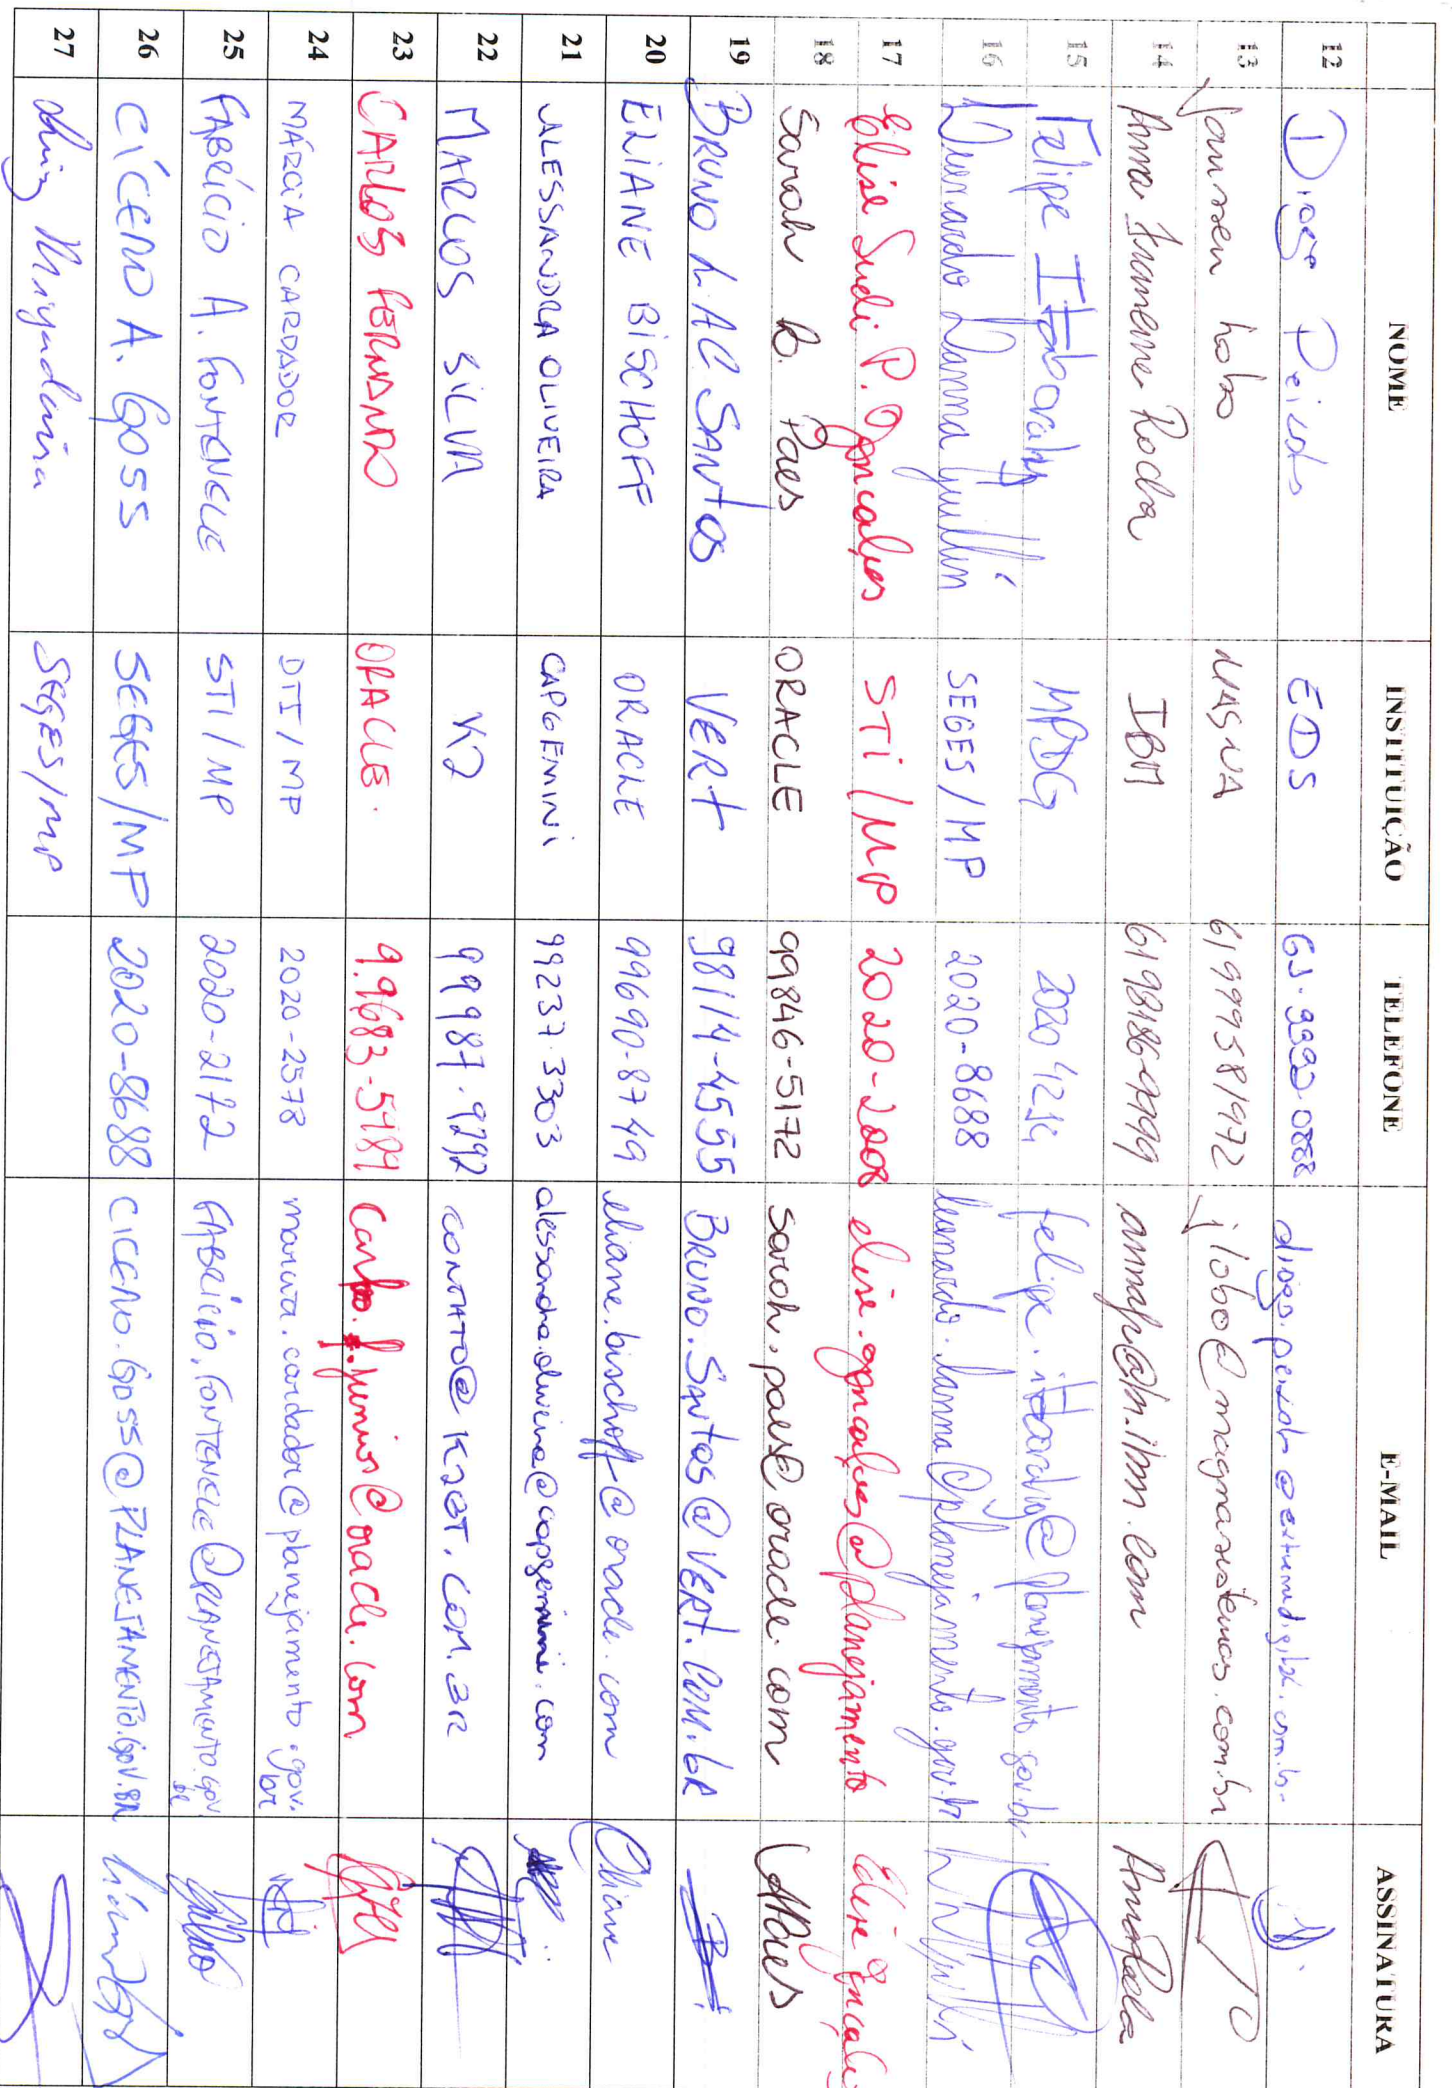 NOME INSTITUIÇÃO TELEFONE E-MAIL ASSINATURA
12 Diogo Peixoto EDS 61.9992.0888
13 Janssen Lobo MAGNA 61999581972 jlobo@magnasistemas.com.br
14 Anna Francienne Rocha IBM
15 Felipe Itaborahy MPDG felipe.itaborahy@planejamento.gov.br
16 Leonardo Lanna Guillén SEGES/MP 2020-8688 leonardo.lanna@planejamento.gov.br
17 Elise Sueli P. Gonçalves STI/MP 2020-2008 elise.goncalves@planejamento Elise Gonçalves
18 Sarah R. Paes ORACLE 99846-5172 sarah.paes@oracle.com
19 BRUNO L. AC. SANTOS VERT 98114-4555 BRUNO.SANTOS@VERT.COM.BR
20 ELIANE BISCHOFF ORACLE 99690-8749 eliane.bischoff@oracle.com Eliane
21 ALESSANDRA OLIVEIRA CAPGEMINI 99237.3303 alessandra.oliveira@capgemini.com
22 MARCOS SILVA K2 99987.9292 CONTATO@K2BT.COM.BR
23 CARLOS FERNANDO ORACLE. 9.9683-5489 Carlo.f.junior@oracle.com
24 MÁRCIA CARDADOR DTI/MP 2020-2578 marcia.cardador@planejamento.gov.br
25 FABRÍCIO A. FONTENELE STI/MP 2020-2172 FABRICIO.FONTENELE@PLANEJAMENTO.GOV.BR
26 CÍCERO A. GOSS SEGES/MP 2020-8688 CICERO.GOSS@PLANEJAMENTO.GOV.BR
27 Luiz Miyadaira SEGES/MP